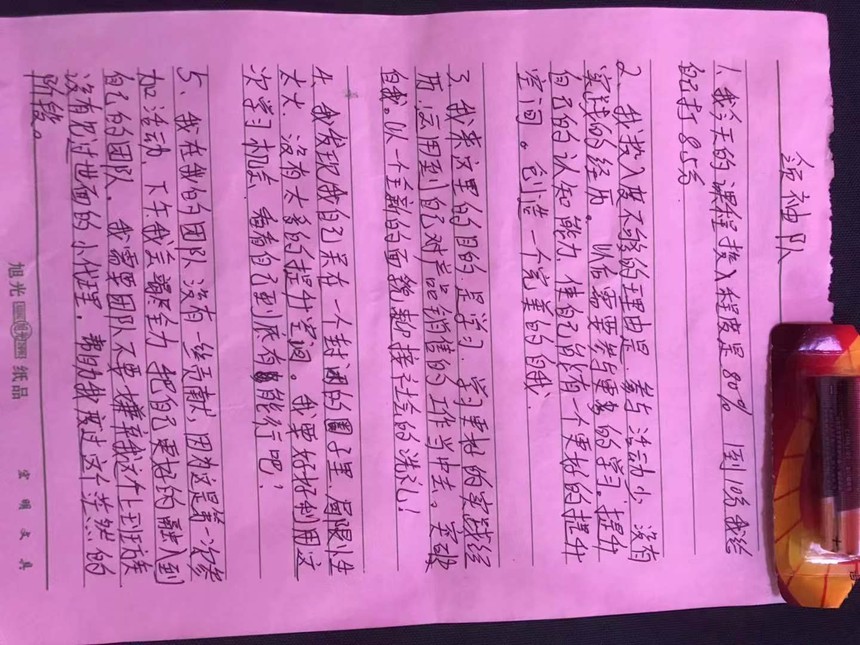 领神队
1、我今天的课程投入程度是80% 到10分我给
自己打8.5分
2、我投入度不够的理由是,参与活动少,没有
实践的经历。以后需要参与更多的学习。提升
自己的认知能力,使自己能有一个更好的提升
空间。创造一个完美的自我.
3、我来这里的目的是学习,学习更好的实践经
历,运用到自己对产品销售的工作当中去。突破
自我。以一个全新的面貌迎接社会的洗礼!
4、我发现我自己呆在一个封闭的圈子里,局限性
太大,没有太多的提升空间。我要好好利用这
次学习机会,看看自己到底有多能行吧!
5、我在我的团队没有一丝贡献,因为这是第一次参
加活动,下午我会竭尽全力把自己更好的融入到
自己的团队。我需要团队不要嫌弃我这个
没有见过世面的小代理,帮助我度过这个茫然的
阶段。
旭光 纸品 宏明文具